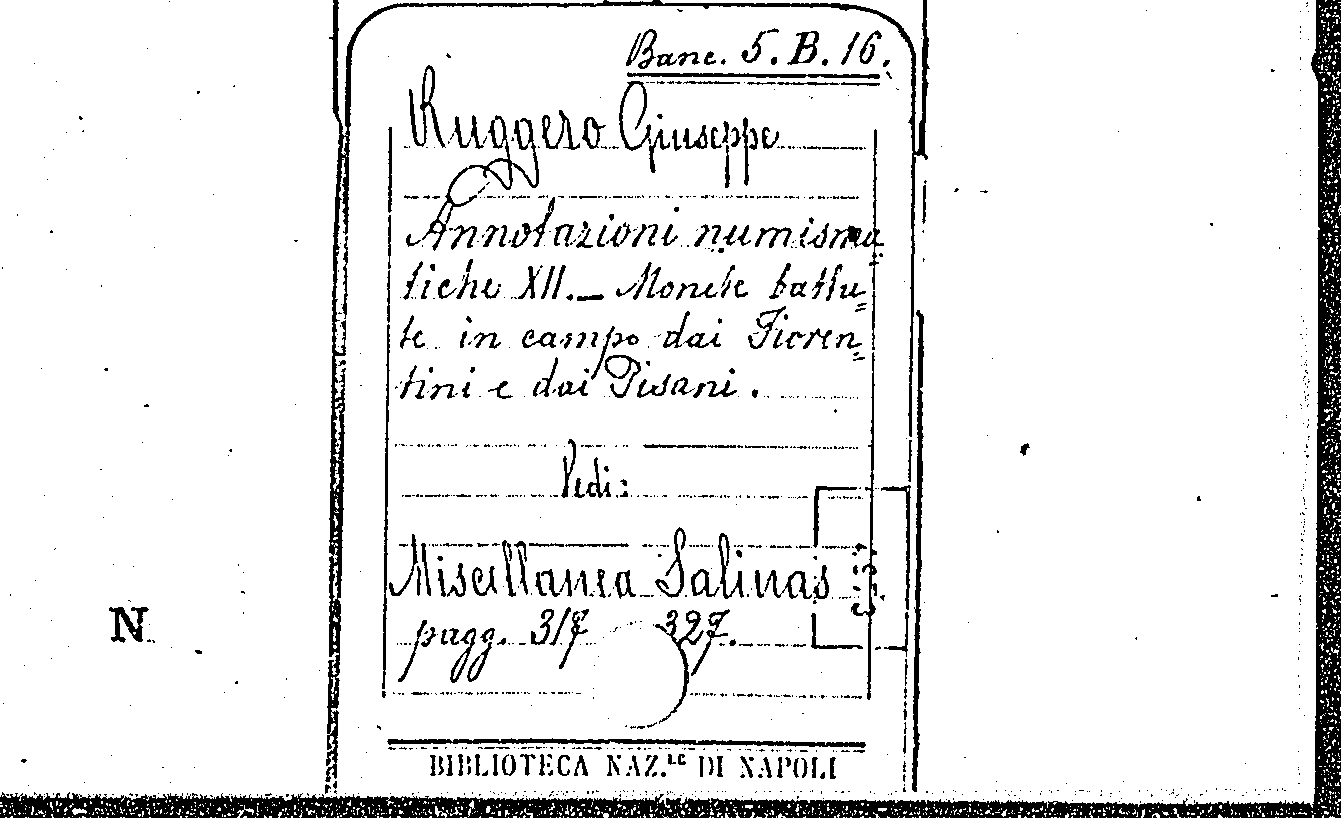 Banc. 5. B. 16.
Ruggero Giuseppe
Annotazioni numisma=
tiche XII. — Monete battu=
te in campo dai Fioren=
tini e dai Pisani.
Vedi:
Miscellanea Salinas
pagg. 317 327.
N
BIBLIOTECA NAZ.LE DI NAPOLI